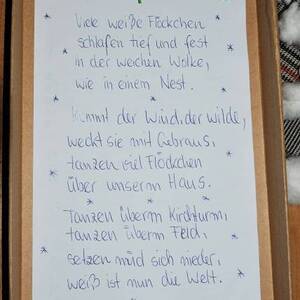 Viele weiße Flöckchen
schlafen tief und fest
in der weichen Wolke,
wie in einem Nest.
Kommt der Wind, der wilde,
weckt sie mit Gebraus,
tanzen viel Flöckchen
über unserm Haus.
Tanzen überm Kirchturm,
tanzen überm Feld,
setzen müd sich nieder,
weiß ist nun die Welt.